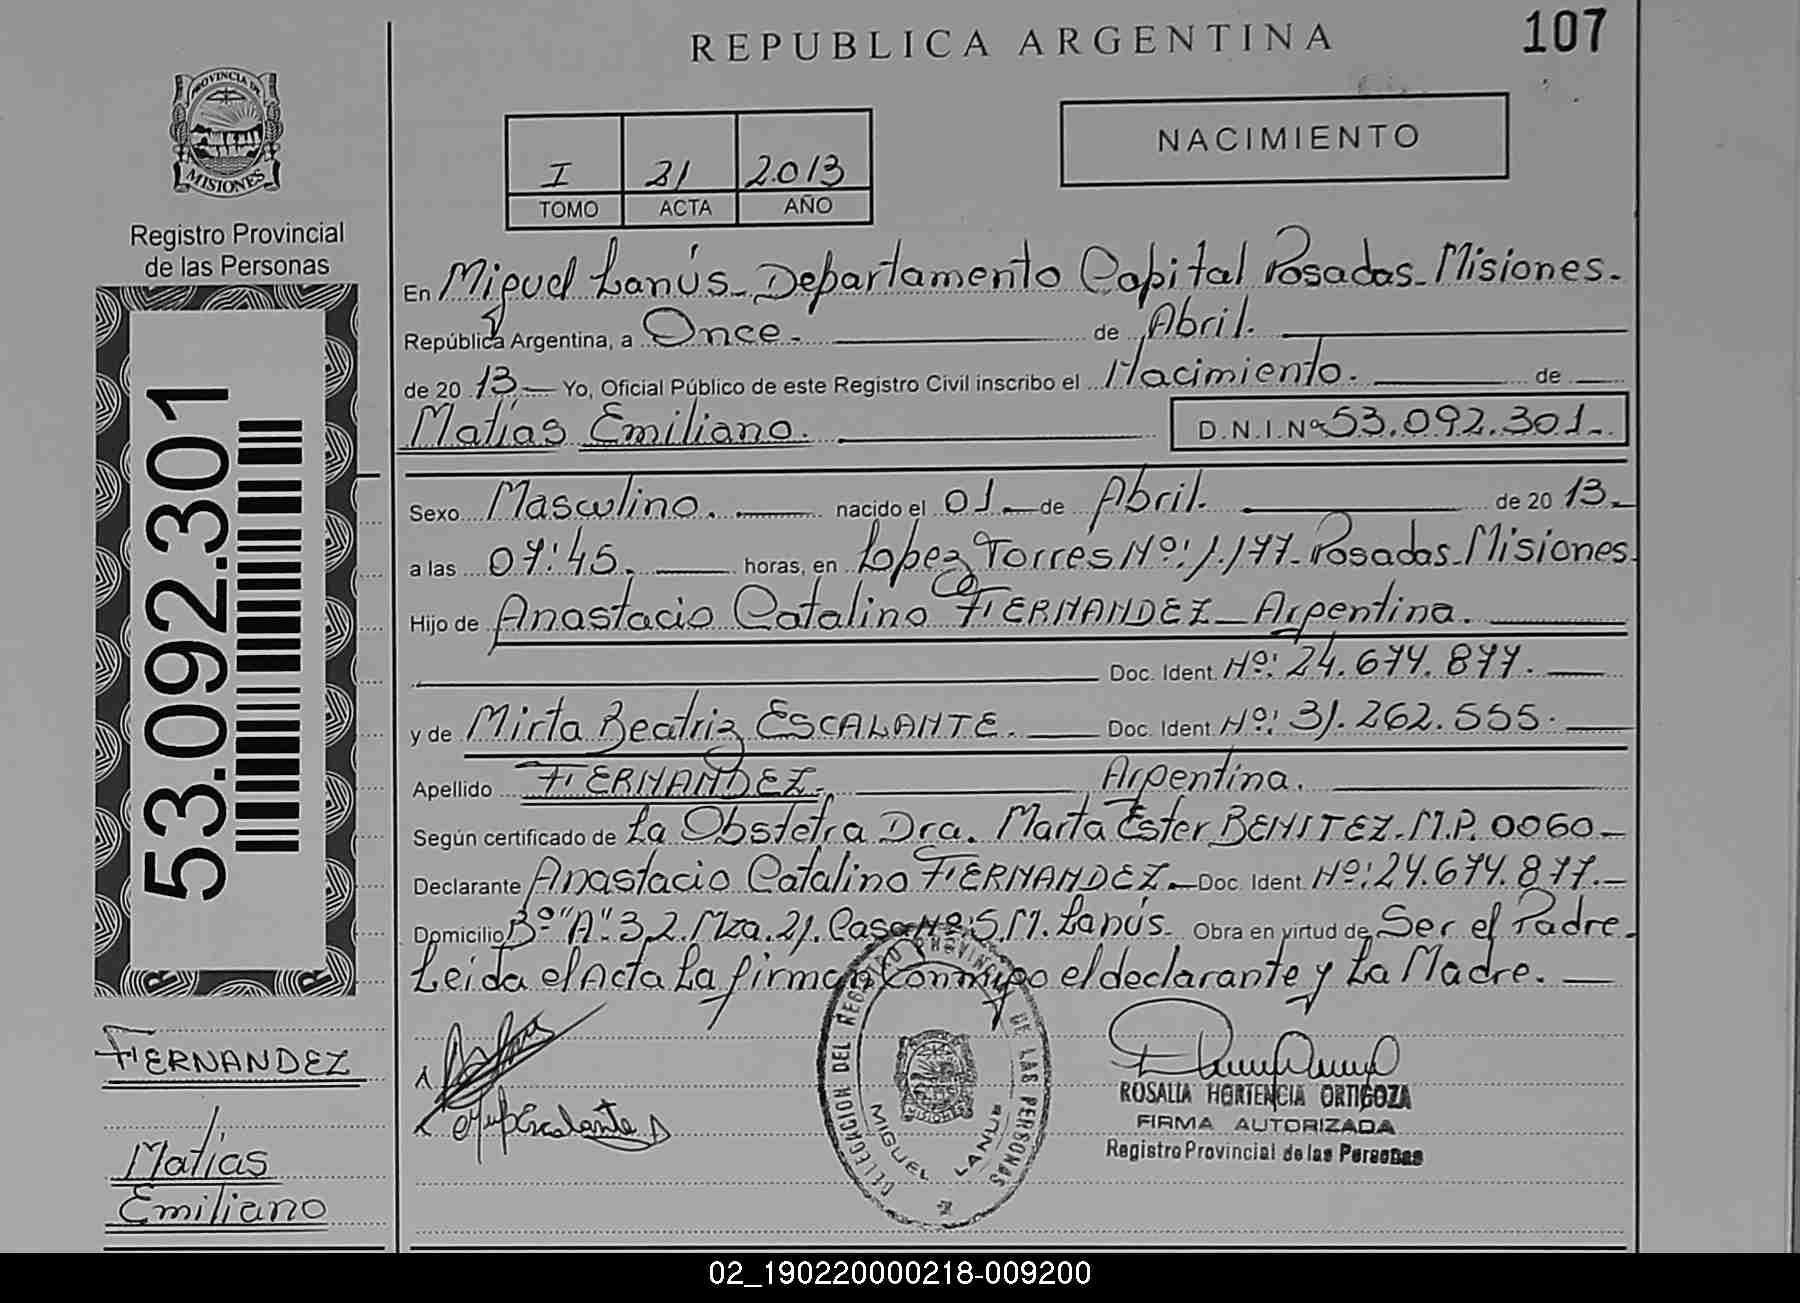 REPUBLICA ARGENTINA
107
PROVINCIA DE
MISIONES
Registro Provincial
de las Personas
I 21 2.013
TOMO ACTA AÑO
NACIMIENTO
En Miguel Lanús_Departamento Capital Posadas_Misiones.
República Argentina, a Once. de Abril.
de 20 13 Yo, Oficial Público de este Registro Civil inscribo el Nacimiento. de
Matías Emiliano.
D.N.I.Nº 53.092.301
Sexo Masculino. nacido el 01 de Abril. de 20 13.
a las 07:45. horas, en Lopez Torres Nº: 1.177_Posadas_Misiones.
Hijo de Anastacio Catalino FERNANDEZ_Argentina.
Doc. Ident. Nº: 24.674.877.
y de Mirta Beatriz ESCALANTE. Doc. Ident Nº: 31.262.555.
Apellido FERNANDEZ. Argentina.
Según certificado de La Obstetra Dra. Marta Ester BENITEZ. M.P. 0060
Declarante Anastacio Catalino FERNANDEZ. Doc. Ident Nº: 24.674.877.
Domicilio Bº "A" 3,2. Mza. 21. Casa Nº: 5. M. Lanús. Obra en virtud de Ser el Padre.
Leida el Acta La firman Conmigo el declarante y La Madre.
53.092.301
FERNANDEZ
Matías
Emiliano
Escalante
DELEGACION DEL REGISTRO PROVINCIAL DE LAS PERSONAS
MISIONES
MIGUEL LANUS
ROSALIA HORTENCIA ORTIGOZA
FIRMA AUTORIZADA
Registro Provincial de las Personas
02_190220000218-009200